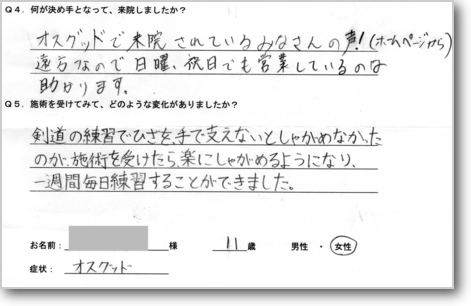 Q4．何が決め手となって、来院しましたか？
オスグッドで来院されているみなさんの声！(ホームページから)
遠方なので日曜、祝日でも営業しているのは
助かります。
Q5．施術を受けてみて、どのような変化がありましたか？
剣道の練習でひざを手で支えないとしゃがめなかった
のが、施術を受けたら、楽にしゃがめるようになり、
一週間毎日練習することができました。
お名前： 様 11歳 男性・女性
症状： オスグッド